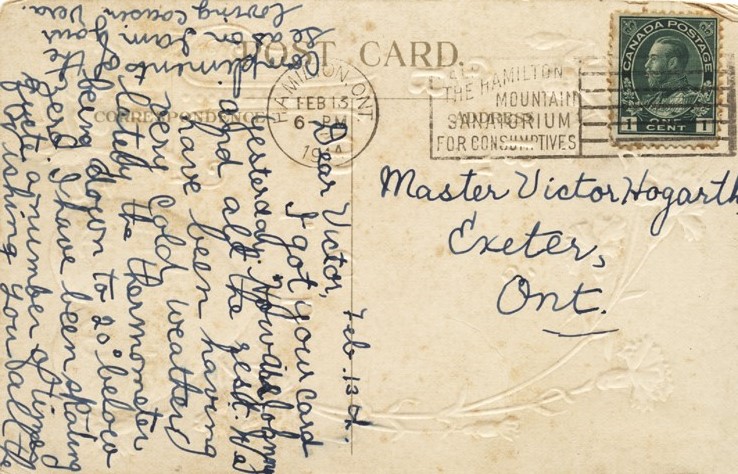 POST CARD.
CORRESPONDENCE
ADDRESS
HAMILTON, ONT.
FEB 13
6 - PM
THE HAMILTON
MOUNTAIN
SANATORIUM
FOR CONSUMPTIVES
CANADA POSTAGE
1 CENT 1
Master Victor Hogarth
Exeter,
Ont.
Feb. 13th.
Dear Victor,
I got your card
yesterday. How are
and all the rest. We
have been having
very cold weather
lately the thermometer
being down to 20° below
zero. I have been skating
quite a number of times
Wishing you all the
compliments of the
season I am your
loving cousin
Vera.